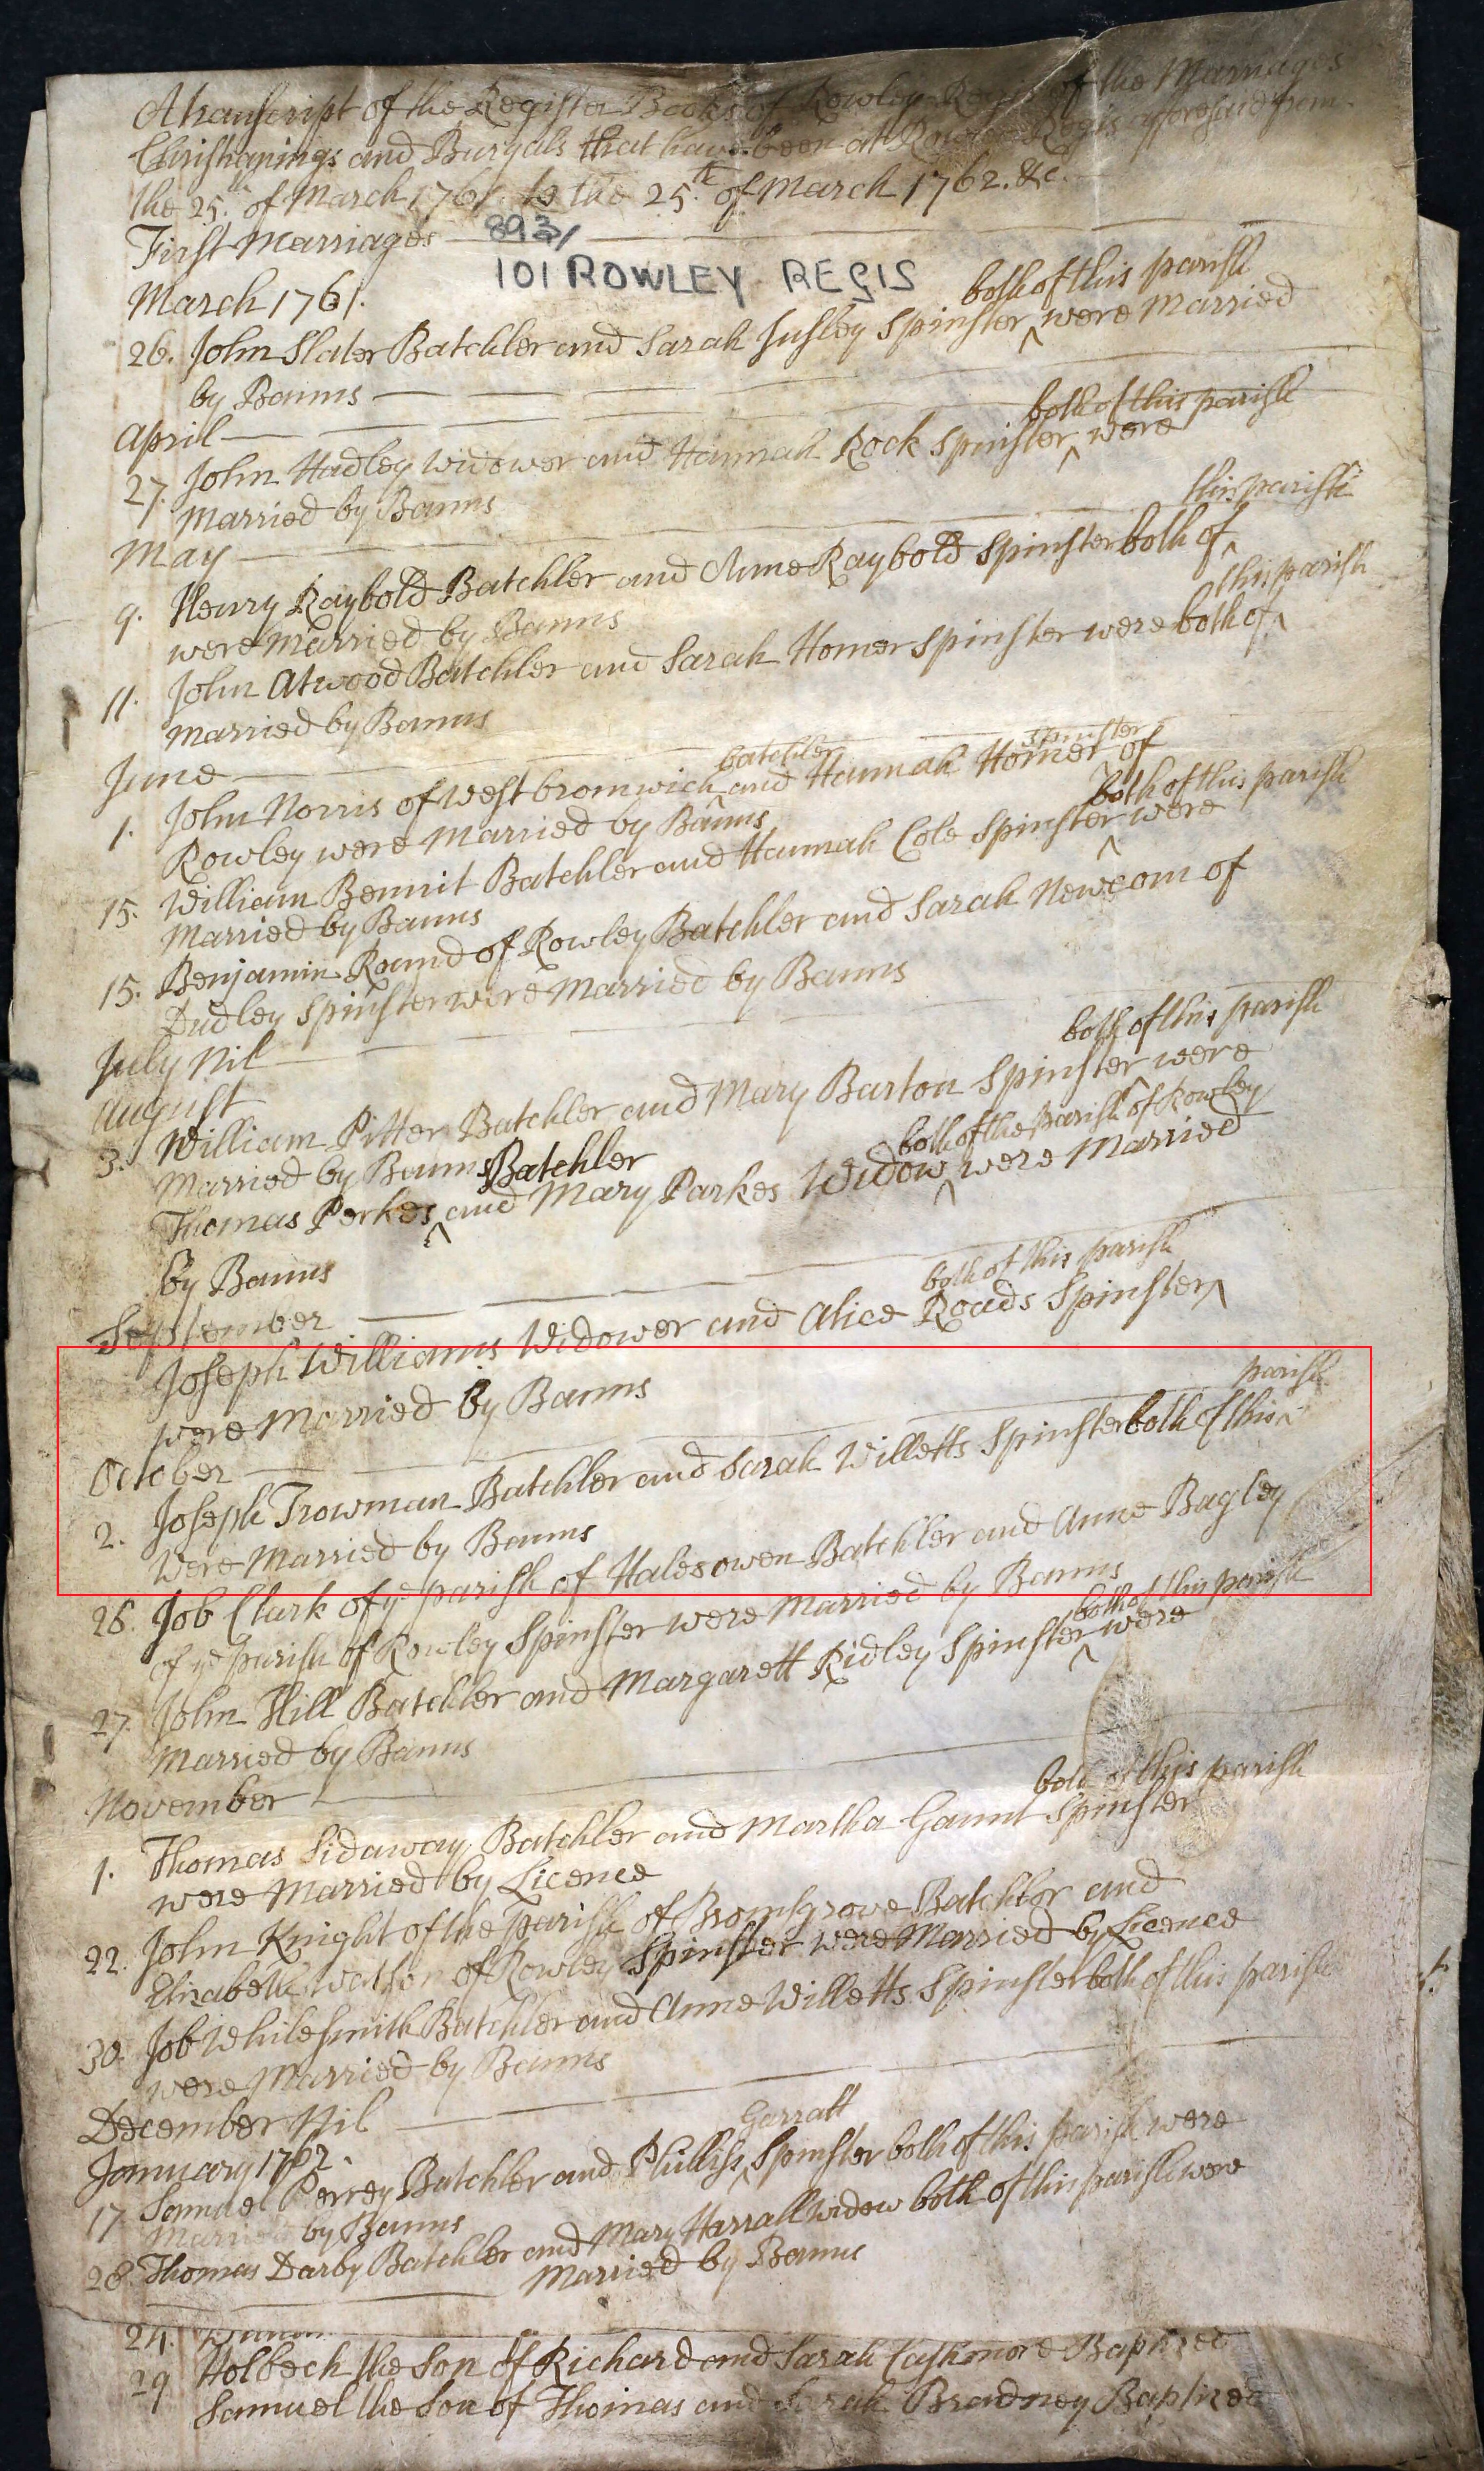 A transcript of the Register Books of Rowley Regis of the Marriages
Christianings and Buryals that have been at Rowley Regis aforesaid from
the 25.th of March 1761. to the 25.th of March 1762. &c.
First Marriages
893/
101 ROWLEY REGIS
March 1761.
both of this parish
26. John Slater Batchler and Sarah Insley Spinster ^ were Married
by Banns
April
both of this parish
27. John Hadley Widower and Hannah Rock Spinster ^ were
Married by Banns
May
this parish
9. Henry Raybold Batchler and Anne Raybold Spinster both of ^
were Married by Banns
this parish
11. John Atwood Batchler and Sarah Homer Spinster were both of ^
Married by Banns
June
batchler spinster
1. John Norris of Westbromwich ^ and Hannah Homer ^ of
Rowley were Married by Banns
both of this parish
15. William Bennit Batchler and Hannah Cole Spinster ^ were
Married by Banns
15. Benjamin Round of Rowley Batchler and Sarah Newcom of
Dudley Spinster were Married by Banns
July Nil
August
both of this parish
3. William Pitter Batchler and Mary Barton Spinster ^ were
Married by Banns
Batchler both of the parish of Rowley
Thomas Perkes ^ and Mary Parkes Widow ^ were Married
by Banns
September
both of this parish
Joseph Williams Widower and Alice Roads Spinster ^
were Married by Banns
October
parish
2. Joseph Trowman Batchler and Sarah Willetts Spinster both of this ^
Were Married by Banns
26. Job Clark of ye parish of Halesowen Batchler and Anne Bagley
of ye parish of Rowley Spinster were Married by Banns
both of this parish
27. John Hill Batchler and Margarett Ridley Spinster ^ were
Married by Banns
November
both of this parish
1. Thomas Sidaway Batchler and Martha Gaunt Spinster
were Married by Licence
22. John Knight of the parish of Bromsgrove Batchlor and
Elizabeth Watson of Rowley Spinster were Married by Licence
30. Job Whilesmith Batchler and Anne Willetts Spinster both of this parish
were Married by Banns
December Nil
January 1762.
Garratt
17 Samuel Perrey Batchler and Philliss ^ Spinster both of this parish were
Married by Banns
28. Thomas Darby Batchler and Mary Harrall Widow both of this parish were
Married by Banns
24.
29 Holbech the Son of Richard and Sarah Cashmore Baptized
Samuel the Son of Thomas and Sarah Bradney Baptized